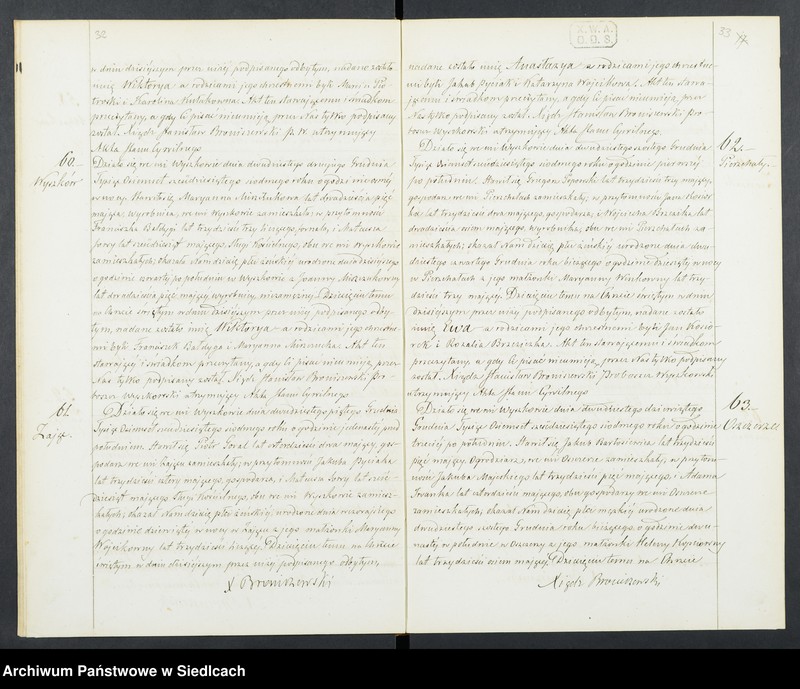 32
w dniu dzisiejszym przez niżej podpisanego odbytym, nadane zostało
imię Wiktorya a rodzicami jego chrzestnemi byli Marcin
i Karolina Akt ten stawającemu i świadkom
przeczytany, a gdy ci pisać nieumieją przez Nas tylko podpisany
został. Xiądz Stanisław Broniszewski P. W. utrzymujący
Akta Stanu Cywilnego.
60
Wyszków
Działo się we wsi Wyszkowie dnia dwudziestego drugiego Grudnia
Tysiąc Ośmset sześćdziesiątego siódmego roku o godzinie
Maryanna lat dwadzieścia pięć
mająca, wyrobnica, we wsi Wyszkowie zamieszkała w przytomności
Franciszka Bałdygi lat trzydzieści trzy liczącego, i Mateusza
Sowy lat sześćdziesiąt mającego, Sługi Kościelnego, obu we wsi Wyszkowie
zamieszkałych; okazała Nam dziecię płci żeńskiej urodzone dnia dzisiejszego
o godzinie czwartej po południu w Wyszkowie z Joanny
lat dwadzieścia pięć mającej, wyrobnicy, niezamężnej. Dziecięciu temu
na Chrzcie świętym w dniu dzisiejszym przez niżej podpisanego odby-
tym, nadane zostało imię Wiktorya a rodzicami jego chrzestne-
mi byli Franciszek Bałdyga i Maryanna Akt ten
stawającej i świadkom przeczytany, a gdy ci pisać nieumieją, przez
Nas tylko podpisany został. Xiądz Stanisław Broniszewski Pro-
boszcz Wyszkowski utrzymujący Akta Stanu Cywilnego.
61.
Zając.
Działo się we wsi Wyszkowie dnia dwudziestego piątego Grudnia
Tysiąc Ośmset sześćdziesiątego siódmego roku o godzinie jedenastej przed
południem. Stawił się Piotr Góral lat czterdzieści dwa mający, gos-
podarz we wsi Zającu zamieszkały, w przytomności Jakuba Pyciaka
lat trzydzieści cztery mającego, gospodarza, i Mateusza Sowy lat sześć-
dziesiąt mającego Sługi Kościelnego, obu we wsi Wyszkowie zamiesz-
kałych; okazał Nam dziecię płci żeńskiej, urodzone dnia wczorajszego
o godzinie dziewiątej w nocy w Zającu z jego małżonki Maryanny
Wójcikowny lat trzydzieści liczącej. Dziecięciu temu na Chrzcie
świętym w dniu dzisiejszym przez niżej podpisanego odbytym,
X Broniszewski
X. W. A.
D. O. S.
33
nadane zostało imię Anastazya a rodzicami jego chrzestne-
mi byli Jakub Pyciak i Katarzyna Wójcikowa. Akt ten stawa-
jącemu i świadkom przeczytany, a gdy ci pisać nieumieją, przez
Nas tylko podpisany został. Xiądz Stanisław Broniszewski Pro-
boszcz Wyszkowski utrzymujący Akta Stanu Cywilnego.
62.
Pierzchały.
Działo się we wsi Wyszkowie dnia dwudziestego szóstego Grudnia
Tysiąc Ośmset sześćdziesiątego siódmego roku o godzinie pierwszej
po południu. Stawił się Grzegorz lat trzydzieści trzy mający,
gospodarz we wsi Pierzchałach zamieszkały, w przytomności Jana Kosior-
ka lat trzydzieści dwa mającego, gospodarza, i Wojciecha lat
dwadzieścia ośm mającego, wyrobnika, obu we wsi Pierzchałach za-
mieszkałych; okazał Nam dziecię płci żeńskiej urodzone dnia dwu-
dziestego czwartego Grudnia roku bieżącego o godzinie dziesiątej w nocy
w Pierzchałach z jego małżonki Maryanny lat trzy-
dzieści trzy mającej. Dziecięciu temu na Chrzcie świętym w dniu
dzisiejszym przez niżej podpisanego odbytym, nadane zostało
imię Ewa a rodzicami jego chrzestnemi byli Jan Kosio-
rek i Rozalia Akt ten stawającemu i świadkom
przeczytany, a gdy ci pisać nieumieją przez Nas tylko podpisany
został. Xiądz Stanisław Broniszewski Proboszcz Wyszkowski
utrzymujący Akta Stanu Cywilnego.
63.
Działo się we wsi Wyszkowie dnia dwudziestego dziewiątego
Grudnia Tysiąc Ośmset sześćdziesiątego siódmego roku o godzinie
trzeciej po południu. Stawił się Jakub Bartosiewicz lat trzydzieści
pięć mający Ogrodziarz, we wsi zamieszkały, w przytom-
ności Jakuba lat trzydzieści pięć mającego, i Adama
Iwanka lat czterdzieści mającego, obu gospodarzy we wsi
zamieszkałych; okazał Nam dziecię płci męskiej urodzone dnia
dwudziestego szóstego Grudnia roku bieżącego, o godzinie dwu-
nastej w południe w z jego małżonki Heleny
lat trzydzieści ośm mającej. Dziecięciu temu na Chrzcie
Xiądz Broniszewski
Archiwum Państwowe w Siedlcach